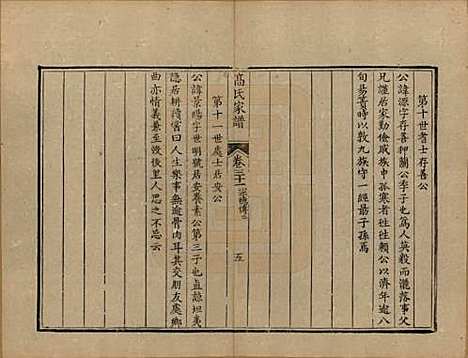 第十世耆士存善公
公諱源字存善狎蘭公季子也爲人英毅而灑落事父
兄謹居家勤儉戚族中孤寒者徃徃賴公以濟年逾八
旬易簀時以敦九族守一經勗子孫焉
高氏家譜
卷三十一
五
第十一世處士居安公
公諱景暘字世明號居安養素公第三子也直諒坦夷
隠居耕讀嘗曰人生樂事無逾骨肉耳其交朋友處鄉
曲亦情義兼至不忘云